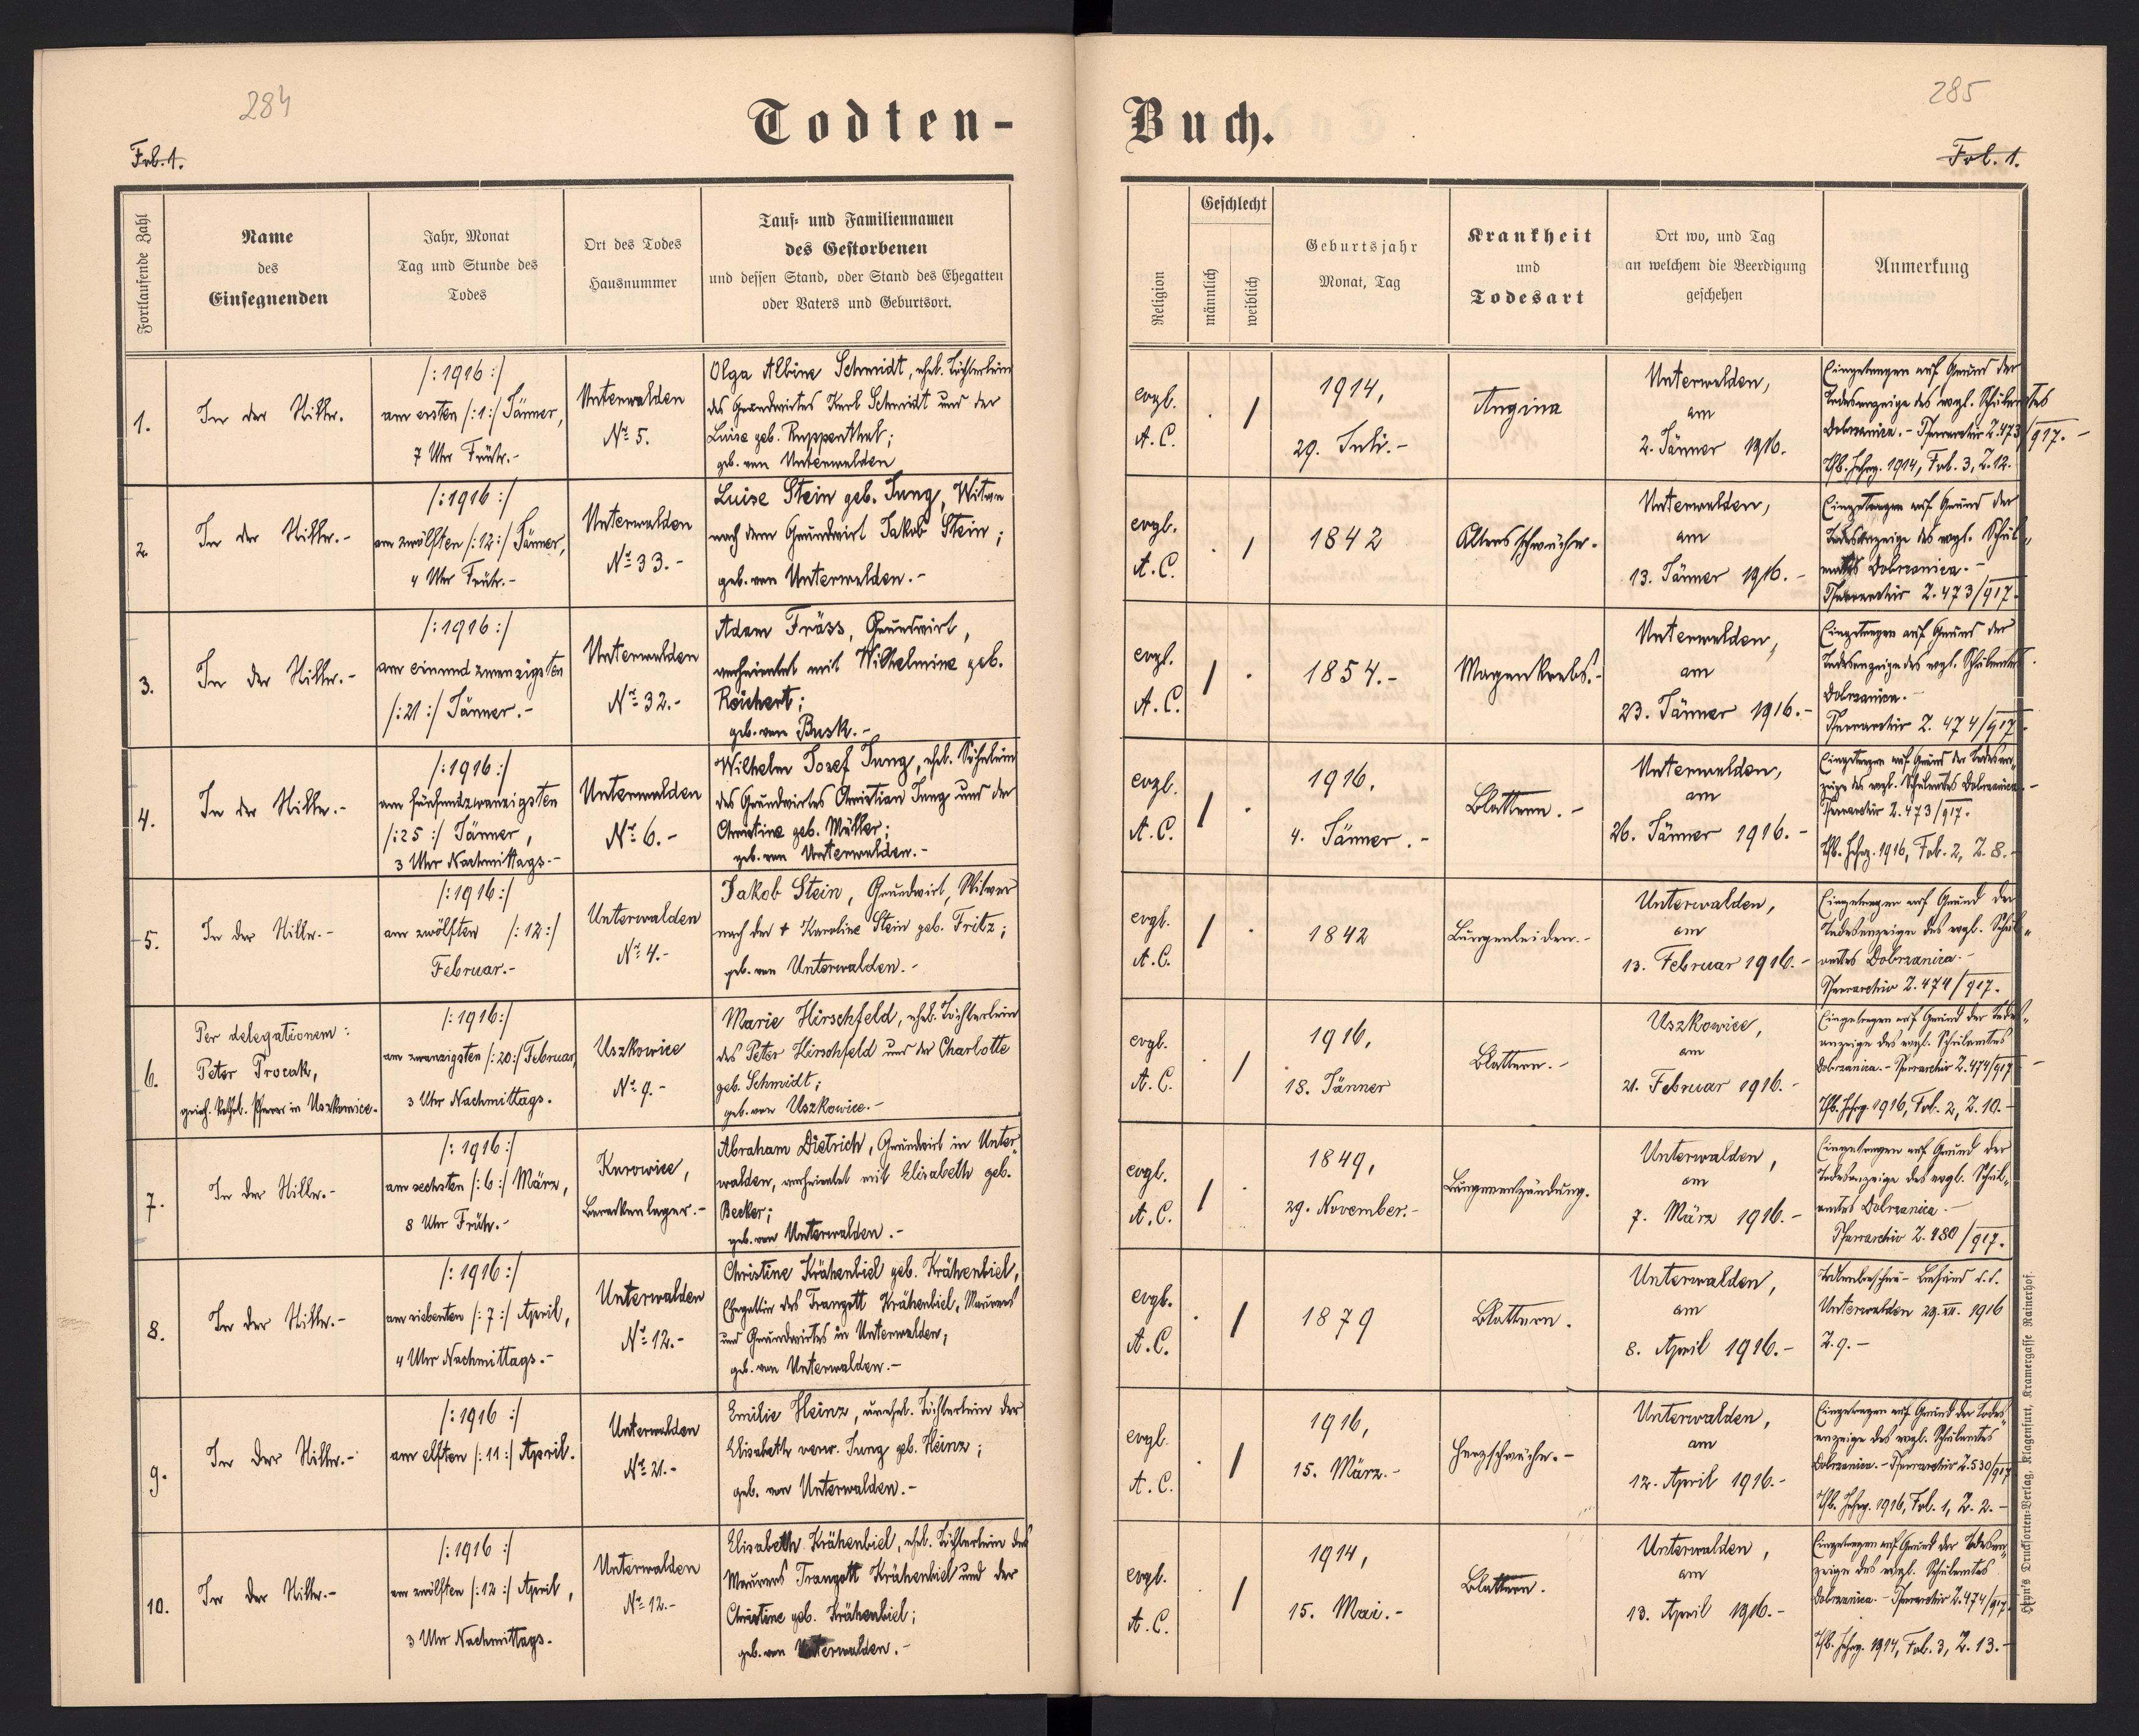 284
285
Todten-
Buch.
Fol. 1.
Fol. 1.
Fortlaufende Zahl
Name
des
Einsegnenden
Jahr, Monat
Tag und Stunde des
Todes
Ort des Todes
Hausnummer
Tauf- und Familiennamen
des Gestorbenen
und dessen Stand, oder Stand des Ehegatten
oder Vaters und Geburtsort.
Religion
Geschlecht
männlich
weiblich
Geburtsjahr
Monat, Tag
Krankheit
und
Todesart
Ort wo, und Tag
an welchem die Beerdigung
geschehen
Anmerkung
1.
In der Stille.
/:1916:/
am ersten /:1:/ Jänner,
7 Uhr Früh.-
Unterwalden
No 5.
Olga Albine Schmidt, ehel. Töchterlein
des Grundwirtes Karl Schmidt und der
Luise geb. Ruppenthal;
geb. von Unterwalden
evgl.
A.C.
. /
1914,
29. Juli.-
Angina
Unterwalden,
am
2. Jänner 1916.
Eingetragen auf Grund der
Todesanzeige des evgl. Schulamtes
Dobrzanica.- Pfarrarchiv Z.473/917.-
Tfb. Jahrg. 1914, Fol. 3, Z.12.
2
In der Stille.-
/:1916:/
am zwölften /:12:/ Jänner,
4 Uhr Früh.-
Unterwalden
No 33.-
Luise Stein geb. Jung, Witwe
nach dem Grundwirt Jakob Stein;
geb. von Unterwalden.-
evgl.
A.C.
. /
1842
Altersschwäche.
Unterwalden,
am
13. Jänner 1916.-
Eingetragen auf Grund der
Todesanzeige des evgl. Schul-
amtes Dobrzanica.-
Pfarrarchiv Z.473/917.
3.
In der Stille.-
/:1916:/
am einundzwanzigsten
/:21:/ Jänner.-
Unterwalden
No 32.-
Adam Fräss, Grundwirt,
verheiratet mit Wilhelmine geb.
Reichert;
geb. von Busk.-
evgl.
A.C.
/ .
1854.-
Magenkrebs.-
Unterwalden,
am
23. Jänner 1916.-
Eingetragen auf Grund der
Todesanzeige des evgl. Schulamtes
Dobrzanica.-
Pfarrarchiv Z. 474/917.
4.
In der Stille.-
/:1916:/
am fünfundzwanzigsten
/:25:/ Jänner,
3 Uhr Nachmittags.-
Unterwalden
No 6.-
Wilhelm Josef Jung, ehel. Söhnlein
des Grundwirtes Christian Jung und der
Christine geb. Müller;
geb. von Unterwalden.-
evgl.
A.C.
/ .
1916,
4. Jänner.-
Blattern.-
Unterwalden,
am
26. Jänner 1916.-
Eingetragen auf Grund der Todesan-
zeige des evgl. Schulamtes Dobrzanica.-
Pfarrarchiv Z.473/917.
Tfb. Jahrg. 1916, Fol. 2, Z. 8.-
5.
In der Stille.-
/:1916:/
am zwölften /:12:/
Februar.-
Unterwalden
No 4.-
Jakob Stein, Grundwirt, Witwer
nach der + Karoline Stein geb. Fritz;
geb. von Unterwalden.-
evgl.
A.C.
/ .
1842
Lungenleiden.-
Unterwalden,
am
13. Februar 1916.-
Eingetragen auf Grund der
Todesanzeige des evgl. Schul-
amtes Dobrzanica.-
Pfarrarchiv Z.474/917.
6.
Per delegationem:
Peter Procak,
griech. kathol. Pfarrer in Uszkowice.
/:1916:/
am zwanzigsten /:20:/ Februar,
3 Uhr Nachmittags.
Uszkowice
No 9.-
Marie Hirschfeld, ehel. Töchterlein
des Peter Hirschfeld und der Charlotte
geb. Schmidt;
geb. von Uszkowice.-
evgl.
A.C.
. /
1916,
18. Jänner
Blattern.-
Uszkowice,
am
21. Februar 1916.-
Eingetragen auf Grund der Todes-
anzeige des evgl. Schulamtes
Dobrzanica.- Pfarrarchiv Z.474/917-
Tfb. Jahrg. 1916, Fol. 2, Z.10.-
7.
In der Stille.-
/:1916:/
am sechsten /:6:/ März,
8 Uhr Früh.-
Kurowice,
Barackenlager.-
Abraham Dietrich, Grundwirt in Unter-
walden, verheiratet mit Elisabeth geb.
Becker;
geb. von Unterwalden.-
evgl.
A.C.
/ .
1849,
29. November.-
Lungenentzündung.
Unterwalden,
am
7. März 1916.-
Eingetragen auf Grund der
Todesanzeige des evgl. Schul-
amtes Dobrzanica.-
Pfarrarchiv Z.480/917.
8.
In der Stille.-
/:1916:/
am siebenten /:7:/ April,
4 Uhr Nachmittags.-
Unterwalden
No 12.-
Christine Krähenbiel geb. Krähenbiel,
Ehegattin des Traugott Krähenbiel, Maurers
und Grundwirtes in Unterwalden;
geb. von Unterwalden.-
evgl.
A.C.
. /
1879
Blattern.
Unterwalden,
am
8. April 1916.-
Totenbeschau-Befund d.d.
Unterwalden 29. 1916
Z.9.-
9.
In der Stille.-
/:1916:/
am elften /:11:/ April.
Unterwalden
No 21.-
Emilie Heinz, unehel. Töchterlein der
Elisabeth verw. Jung geb. Heinz;
geb. von Unterwalden.-
evgl.
A.C.
. /
1916,
15. März.-
Herzschwäche.-
Unterwalden,
am
12. April 1916.-
Eingetragen auf Grund der Todes-
anzeige des evgl. Schulamtes
Dobrzanica.- Pfarrarchiv Z.530/917
Tfb. Jahrg. 1916, Fol. 1, Z. 2.-
10.
In der Stille.-
/:1916:/
am zwölften /:12:/ April,
3 Uhr Nachmittags.
Unterwalden
No 12.-
Elisabeth Krähenbiel, ehel. Töchterlein des
Maurers Traugott Krähenbiel und der
Christine geb. Krähenbiel;
geb. von Unterwalden.-
evgl.
A.C.
/
1914,
15. Mai.-
Blattern.
Unterwalden,
am
13. April 1916.-
Eingetragen auf Grund der Todesan-
zeige des evgl. Schulamtes
Dobrzanica.- Pfarrarchiv Z.474/917.
Tfb. Jahrg. 1914, Fol. 3, Z. 13.-
Heyn's Drucksorten-Verlag, Klagenfurt, Kramergasse Rainerhof.